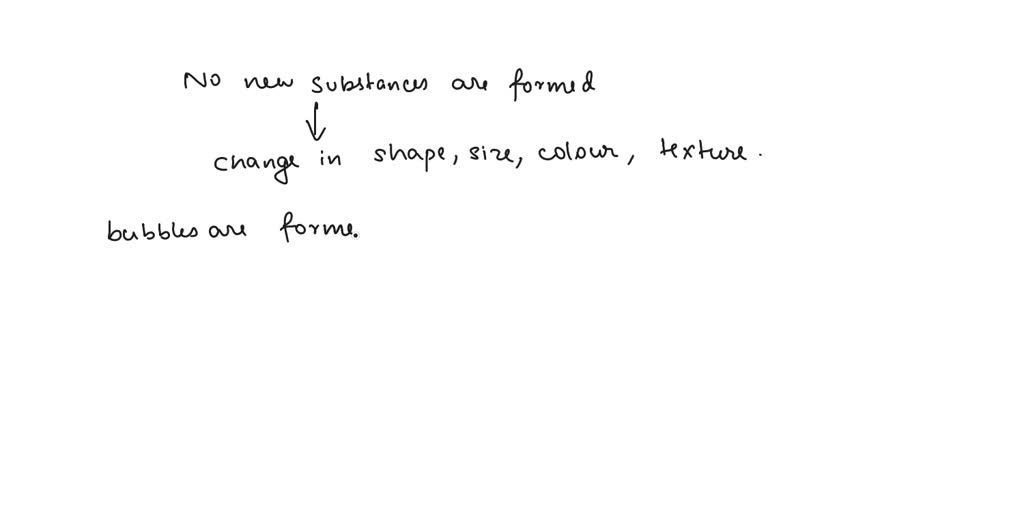 No new substances are formed
↓
change in shape, size, colour, texture.
bubbles are forme.